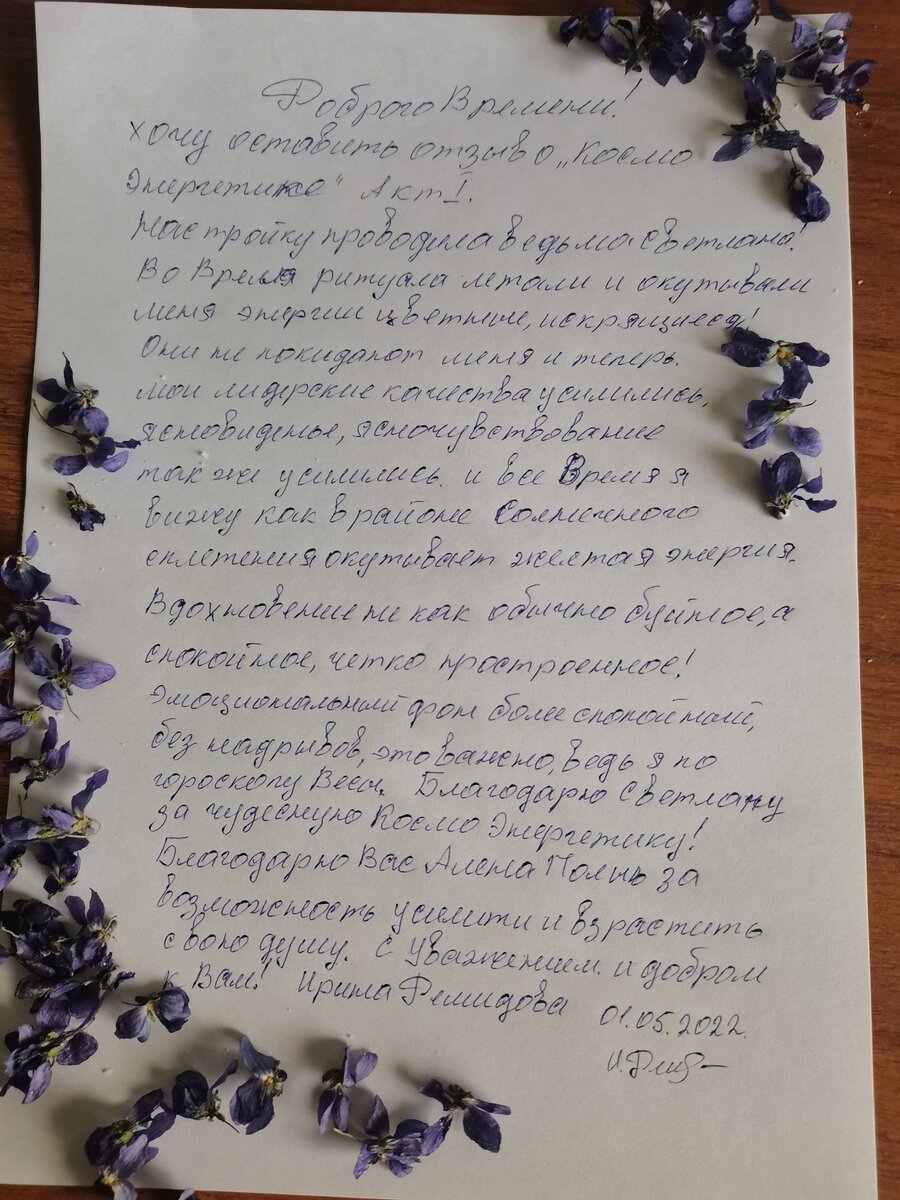 Доброго Времени!
хочу оставить отзыв о „Космо
Энергетике" Акт I.
Настройку проводила ведьма Светлана!
Во Время ритуала летали и окутывали
меня энергии цветные, искрящиеся!
Они не покидают меня и теперь.
мои лидерские качества усилились,
ясновиденье, ясночувствование
так же усилились. и все Время я
вижу как в районе Солнечного
сплетения окутывает желтая энергия.
Вдохновение не как обычно буйное, а
спокойное, четко простроенное!
Эмоциональный фон более спокойный,
без надрывов, это важно, ведь я по
гороскопу Весы. Благодарю Светлану
за чудесную Космо Энергетику!
Благодарю Вас Алена Полынь за
возможность усилить и взрастить
свою душу. С Уважением и добром
к Вам! Ирина Демидова 01.05.2022.